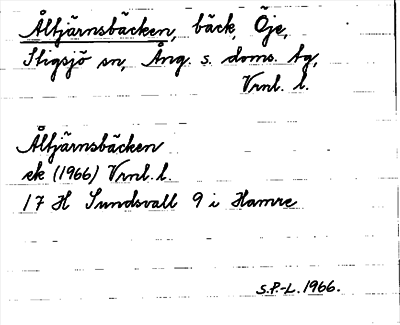 Åltjärnsbäcken, bäck, Öje,
Stigsjö sn, Ång. s. doms. tg,
Vrnl. l.
Åltjärnsbäcken
ek (1966) Vrnl. l.
17 H Sundsvall 9 i Hamre
S.P.-L. 1966.